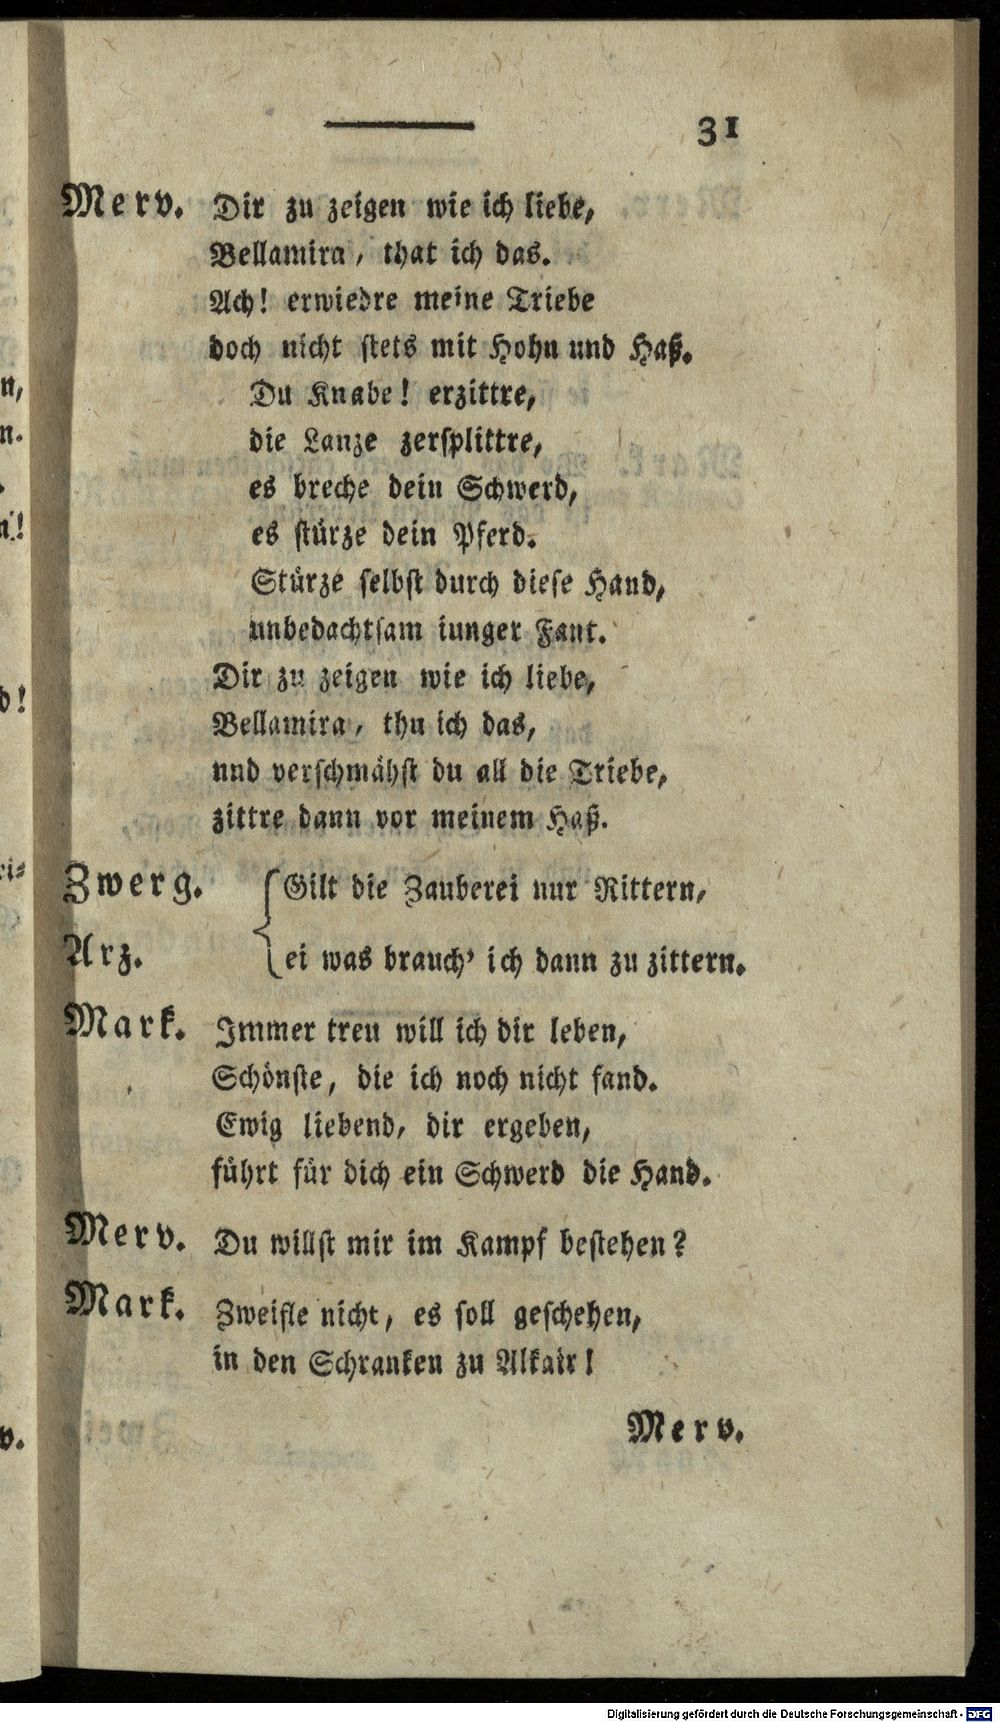 31
Merv. Dir zu zeigen wie ich liebe,
Bellamira, that ich das.
Ach! erwiedre meine Triebe
doch nicht stets mit Hohn und Haß.
Du Knabe! erzittre,
die Lanze zersplittre,
es breche dein Schwerd,
es stürze dein Pferd.
Stürze selbst durch diese Hand,
unbedachtsam iunger Fant.
Dir zu zeigen wie ich liebe,
Bellamira, thu ich das,
und verschmähst du all die Triebe,
zittre dann vor meinem Haß.
Zwerg. Gilt die Zauberei nur Rittern,
Arz. ei was brauch' ich dann zu zittern.
Mark. Immer treu will ich dir leben,
Schönste, die ich noch nicht fand.
Ewig liebend, dir ergeben,
führt für dich ein Schwerd die Hand.
Merv. Du willst mir im Kampf bestehen?
Mark. Zweifle nicht, es soll geschehen,
in den Schranken zu Alkair!
Merv.
n,
n.
n!
d!
ri-
v.
Digitalisierung gefördert durch die Deutsche Forschungsgemeinschaft - DFG